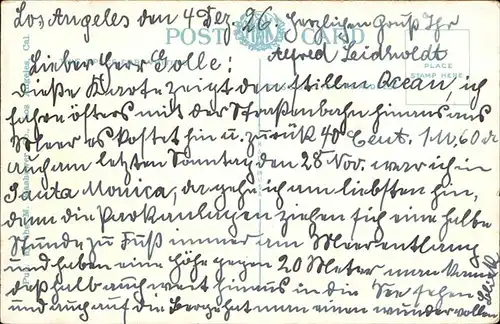 Los Angeles den 4 Dez. 26. Herzlichen Gruß Ihr
Alfred Leidholdt
POST CARD
PLACE
STAMP HERE
Lieber Herr Golle!
Diese Karte zeigt den stillen Ocean, ich
fahre öfters mit der Straßenbahn hinaus ans
Meer es kostet hin u. zurück 40 Cent. 1 M. 60 d
auch am letzten Sonntag den 28 Nov. war ich in
Santa Monica, da gehe ich am liebsten hin,
denn die Parkanlagen ziehen sich eine halbe
Stunde zu Fuß immer am Meer entlang
und haben eine Höhe gegen 20 Meter man kann
deßhalb auch weit hinaus in die See sehen
und auch auf die Berge hat man einen wundervollen
Blick